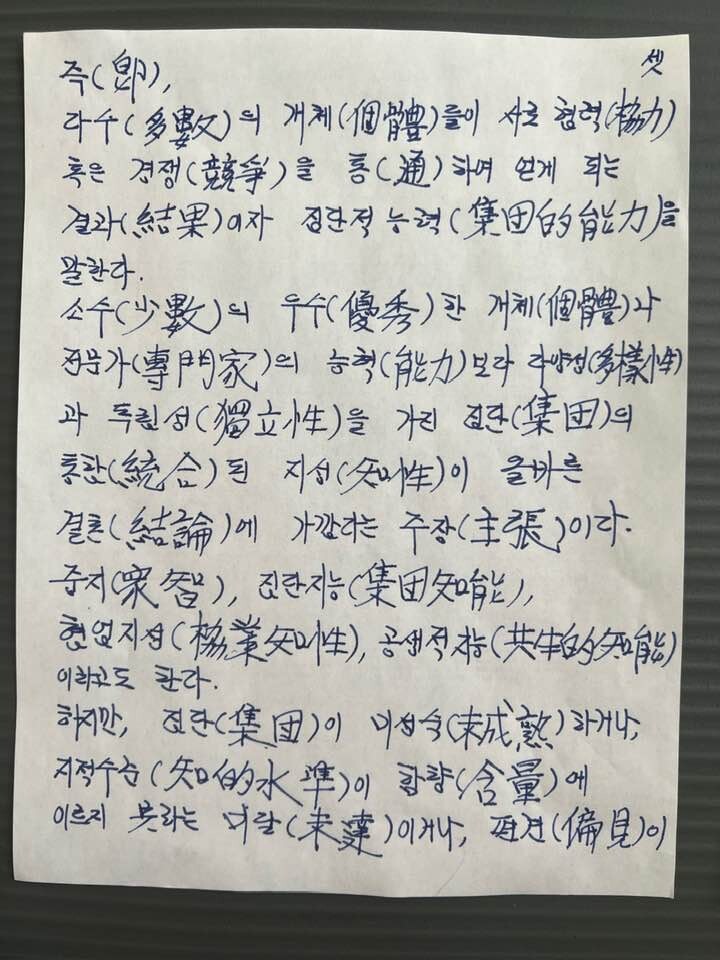 셋
즉(卽),
다수(多數)의 개체(個體)들이 서로 협력(協力)
혹은 경쟁(競爭)을 통(通)하여 얻게 되는
결과(結果)이자 집단적 능력(集団的能力)을
말한다.
소수(少數)의 우수(優秀)한 개체(個體)나
전문가(專門家)의 능력(能力)보다 다양성(多樣性)
과 독립성(獨立性)을 가진 집단(集団)의
통합(統合)된 지성(知性)이 올바른
결론(結論)에 가깝다는 주장(主張)이다.
중지(衆智), 집단지능(集団知能),
협업지성(協業知性), 공생적지능(共生的知能)
이라고도 한다.
하지만, 집단(集団)이 미성숙(未成熟)하거나,
지적수준(知的水準)이 함량(含量)에
이르지 못하는 미달(未達)이거나, 편견(偏見)이